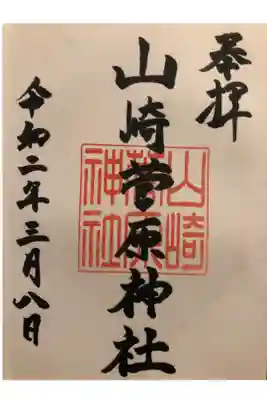 奉拝
山崎菅原神社
山崎
菅原
神社
令和二年三月八日